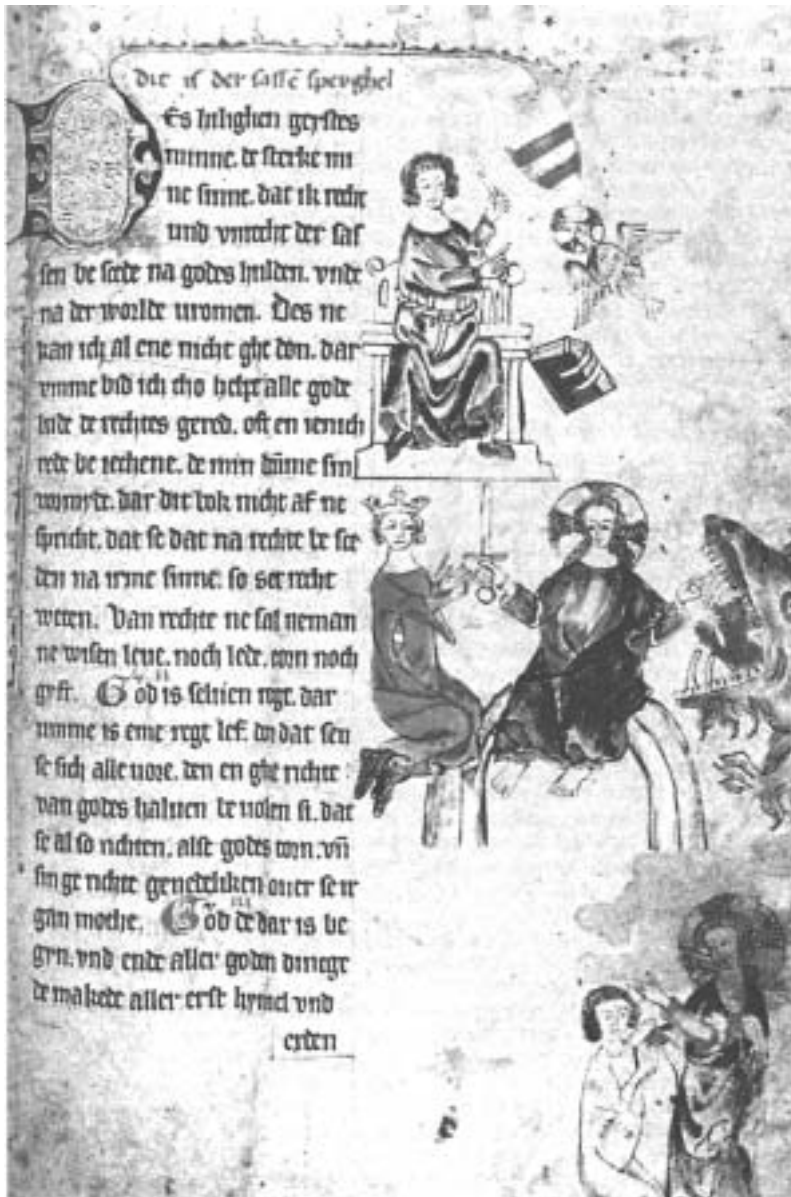 dit is der sassē speyghel
Es hilighen geystes
minne. de sterke mi
ne sinne. dat ik recht
und vnrecht der sas
sen be scede na godes hulden. vnde
na der worlde uromen. Des ne
kan ich al ene nicht ghe don. dar
vmme bid ich tho helpe alle gode
lude de rechtes gered. oft en ienich
rede be iechene. de min dūme sin
vormyde. dar dit bok nicht af ne
spricht. dat se dat na rechte be sce
den na irme sinne. so set recht
weten. Van rechte ne sal neman
ne wisen leue. noch lede. torn noch
gyft. God is seluen regt. dar
umme is eme regt lef. dor dat seu
se sich alle uore. den en ghe richte
van godes haluen be uolen si. dat
se al so richten. alse godes torn. vn̄
sin ge richte genedeliken ouer se ir
gan moche. God de dar is be
gyn. vnd ende aller goden dinege
de makede aller erst hymel vnd
erden